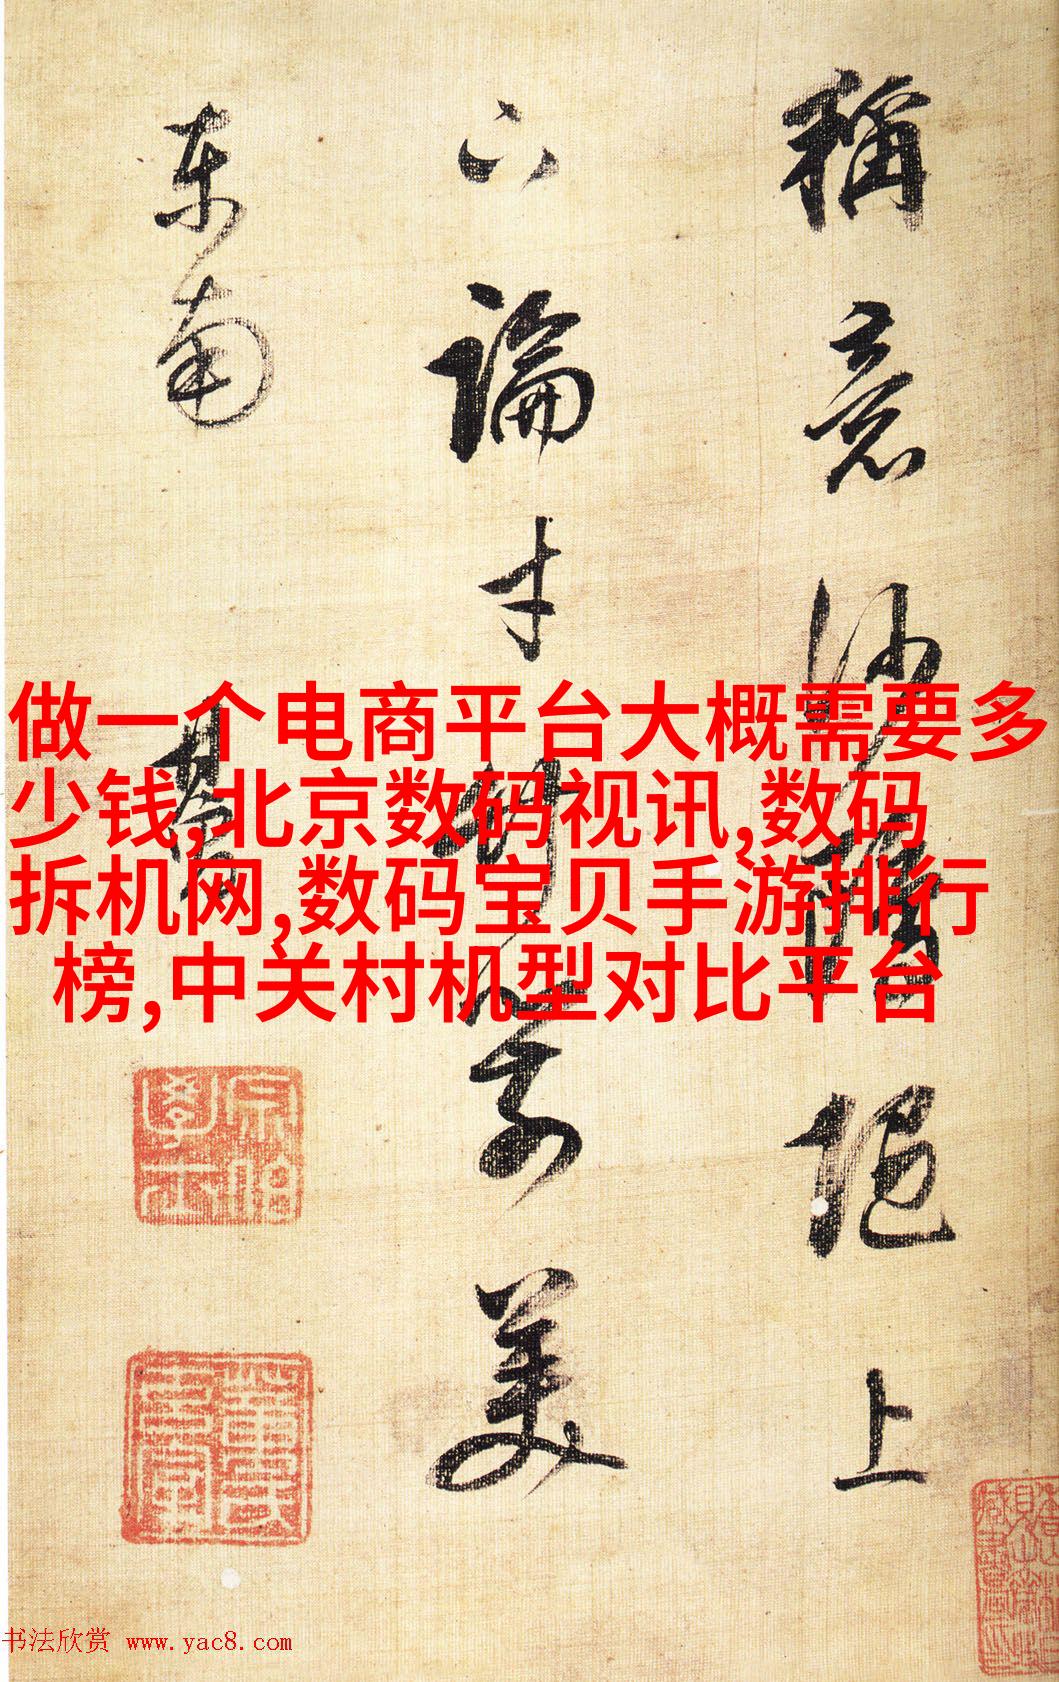 稱意沙上
論才美
東南
做一个电商平台大概需要多
少钱,北京数码视讯,数码
拆机网,数码宝贝手游排行
榜,中关村机型对比平台
宗伯學士
书法欣赏 www.yac8.com